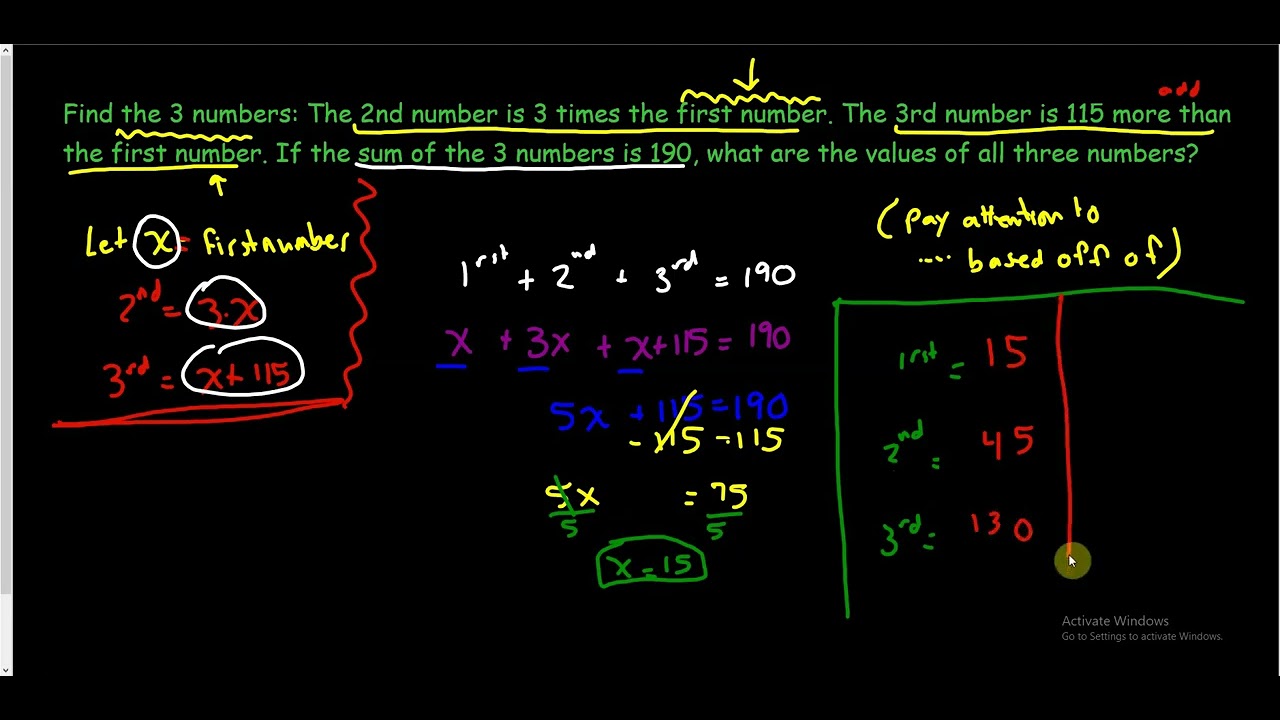 add
Find the 3 numbers: The 2nd number is 3 times the first number. The 3rd number is 115 more than
the first number. If the sum of the 3 numbers is 190, what are the values of all three numbers?
Let x = first number
2nd = 3·x
3rd = x+115
1rst + 2nd + 3rd = 190
x + 3x + x+115 = 190
5x + 115 = 190
- 115 - 115
5x = 75
5 5
x = 15
(pay attention to
.... based off of)
1rst = 15
2nd = 45
3rd = 130
Activate Windows
Go to Settings to activate Windows.